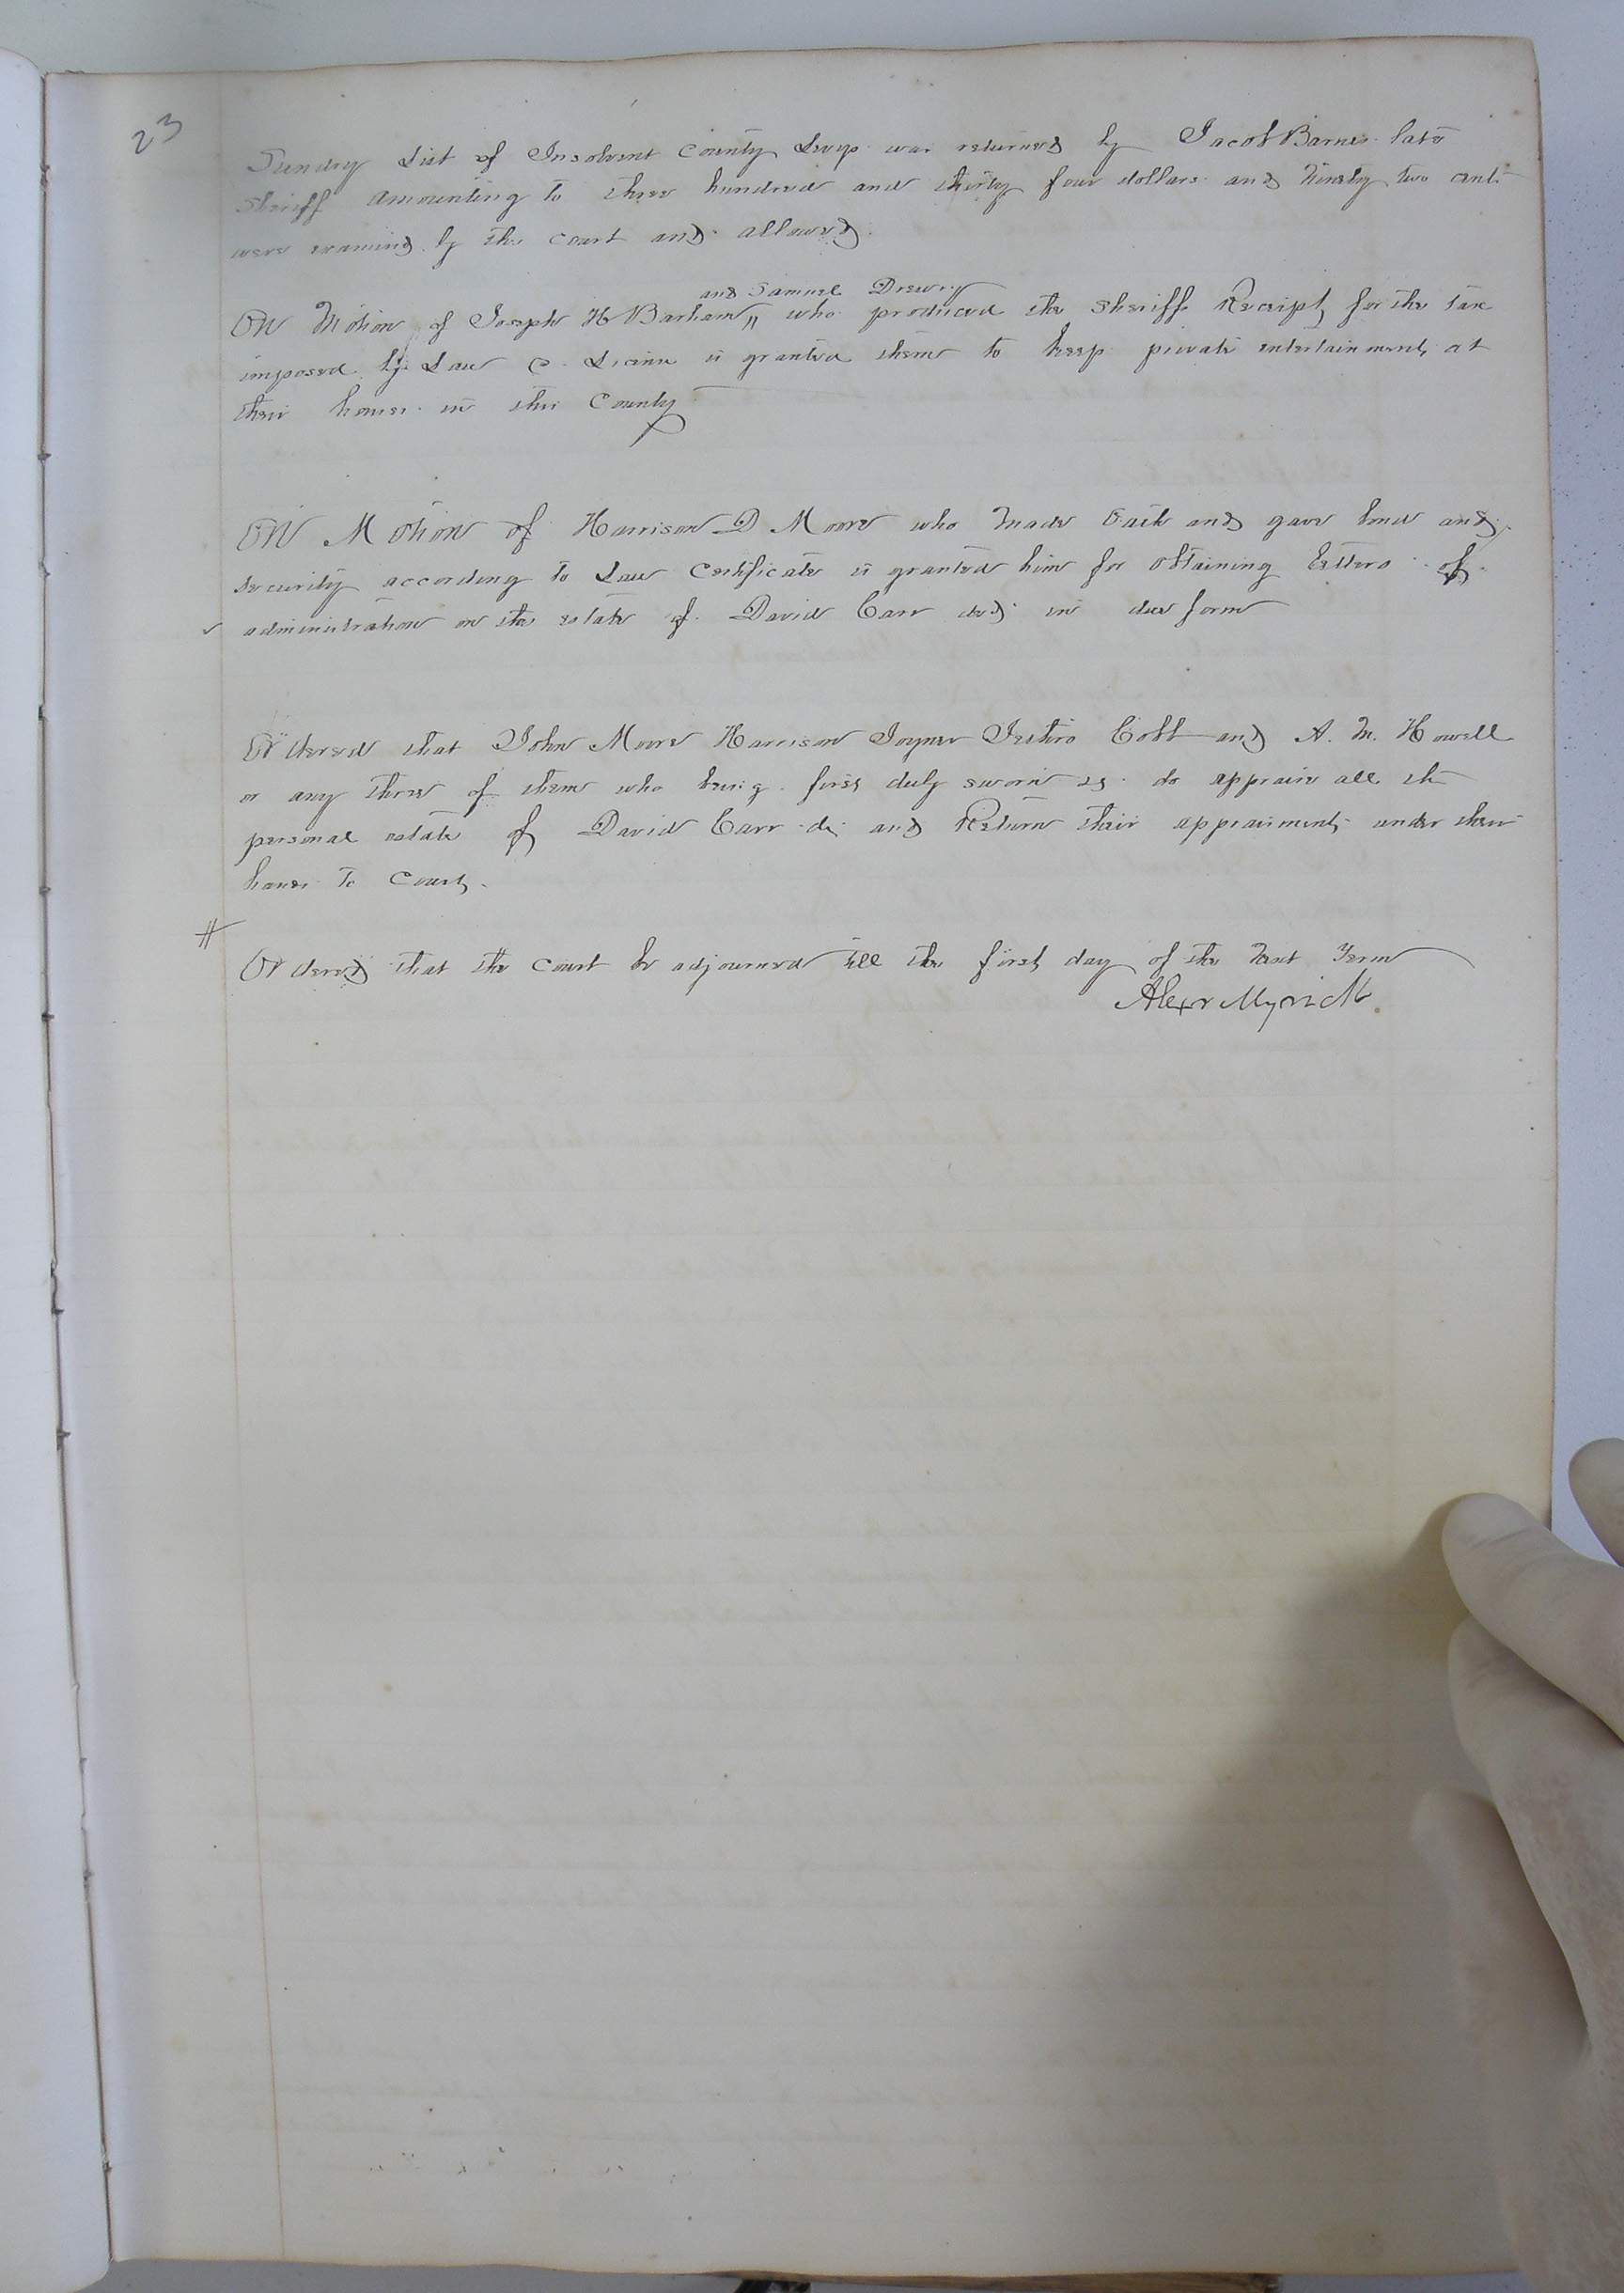 23
Sundry List of Insolvent County Levys was returned by Jacob Barnes late
Sheriff amounting to three hundred and thirty four dollars and Ninety two cents
were examined by the court and allowed
and Samuel Drewry
ON Motion of Joseph H Barham " who produced the Sheriffs Receipt for the tax
imposed by Law a License is granted them to keep private entertainment at
their houses in this County
ON Motion of Harrison D Moore who made oath and gave bond and
security according to Law Certificate is granted him for obtaining letters of
administration on the estate of David Carr decd in due form
Ordered that John Moore Harrison Joyner Jethro Cobb and A. M. Howell
or any three of them who being first duly sworn do appraise all the
personal estate of David Carr and Return their appraisment under their
hands to Court.
#
Ordered that the Court be adjourned till the first day of the Next Term
Alexr Myrick